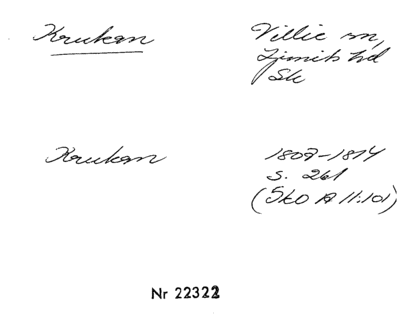 Krukan
Villie sn,
Ljunits hd
Sk
Krukan
1809-1814
s. 261
(SkO A 11:101)
Nr 22322